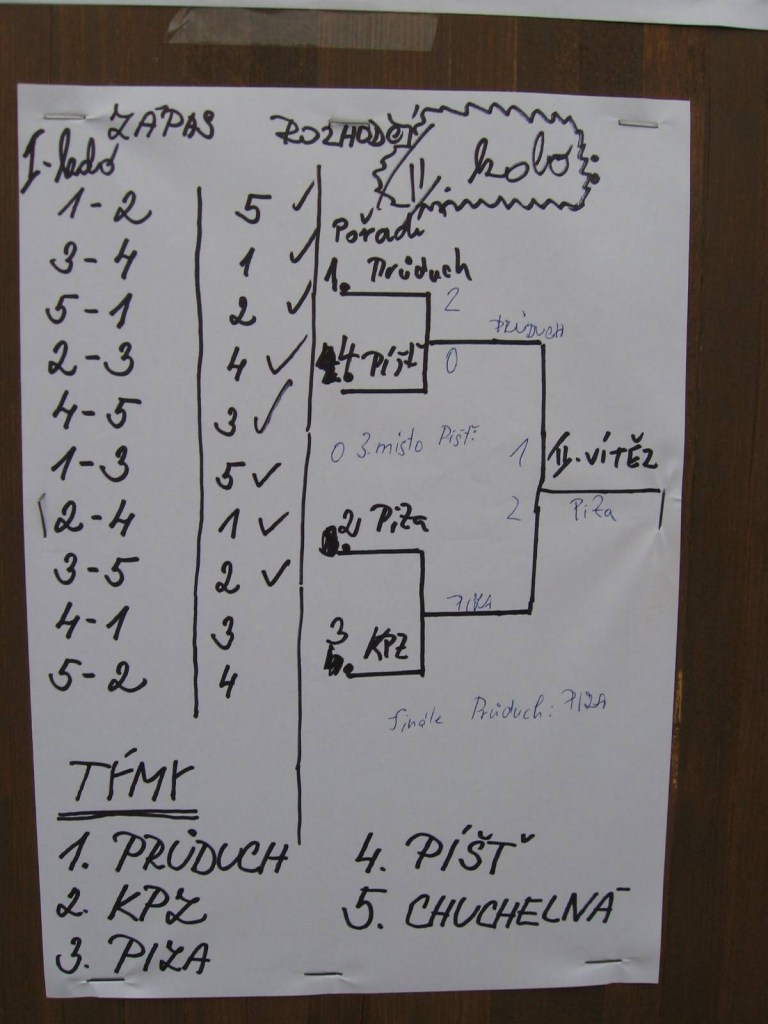 ZÁPAS ROZHODČÍ
I. kolo
II. kolo:
1-2 5 ✓
3-4 1 ✓
5-1 2 ✓
2-3 4 ✓
4-5 3 ✓
1-3 5 ✓
2-4 1 ✓
3-5 2 ✓
4-1 3
5-2 4
Pořadí
1. Průduch
2
PRŮDUCH
4. Píšť
0
0 3. místo Píšť:
1
II. VÍTĚZ
2
Piza
2. Piza
PIZA
3. KPZ
finále Průduch: PIZA
TÝMY
1. PRŮDUCH
2. KPZ
3. PIZA
4. PÍŠŤ
5. CHUCHELNÁ